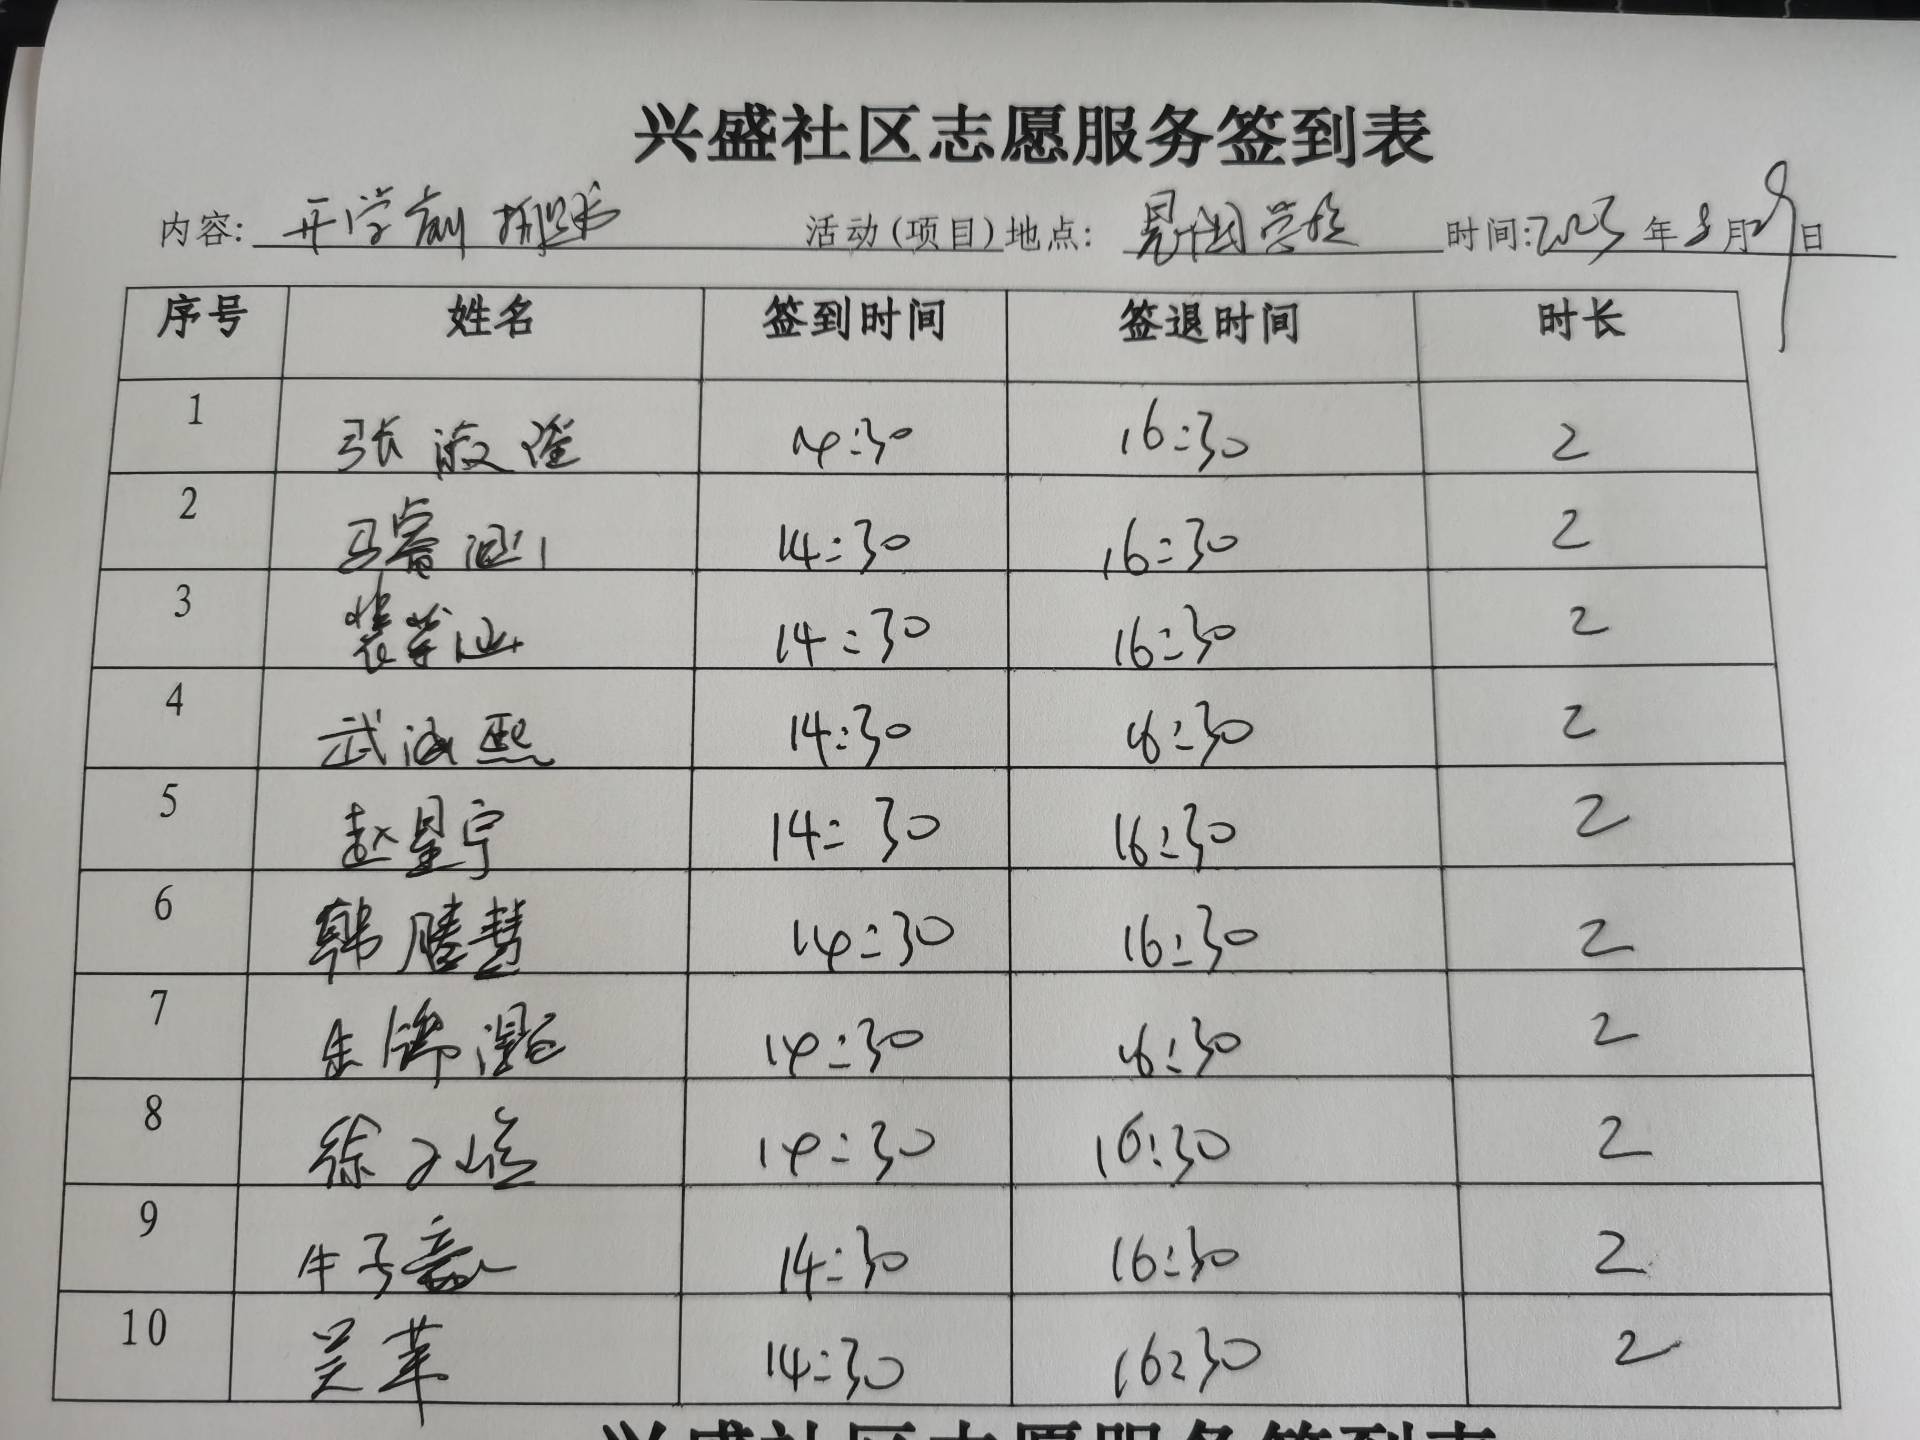 兴盛社区志愿服务签到表
内容: 开学前 活动(项目)地点: 学校 时间: 2023 年 8 月 29 日
序号 姓名 签到时间 签退时间 时长
1 张 14:30 16:30 2
2 马睿涵 14:30 16:30 2
3 裴 14:30 16:30 2
4 武涵熙 14:30 16:30 2
5 赵星宁 14:30 16:30 2
6 韩腾慧 14:30 16:30 2
7 朱锦灏 14:30 16:30 2
8 徐 14:30 16:30 2
9 牛子意 14:30 16:30 2
10 吴苹 14:30 16:30 2
兴盛社区志愿服务签到表